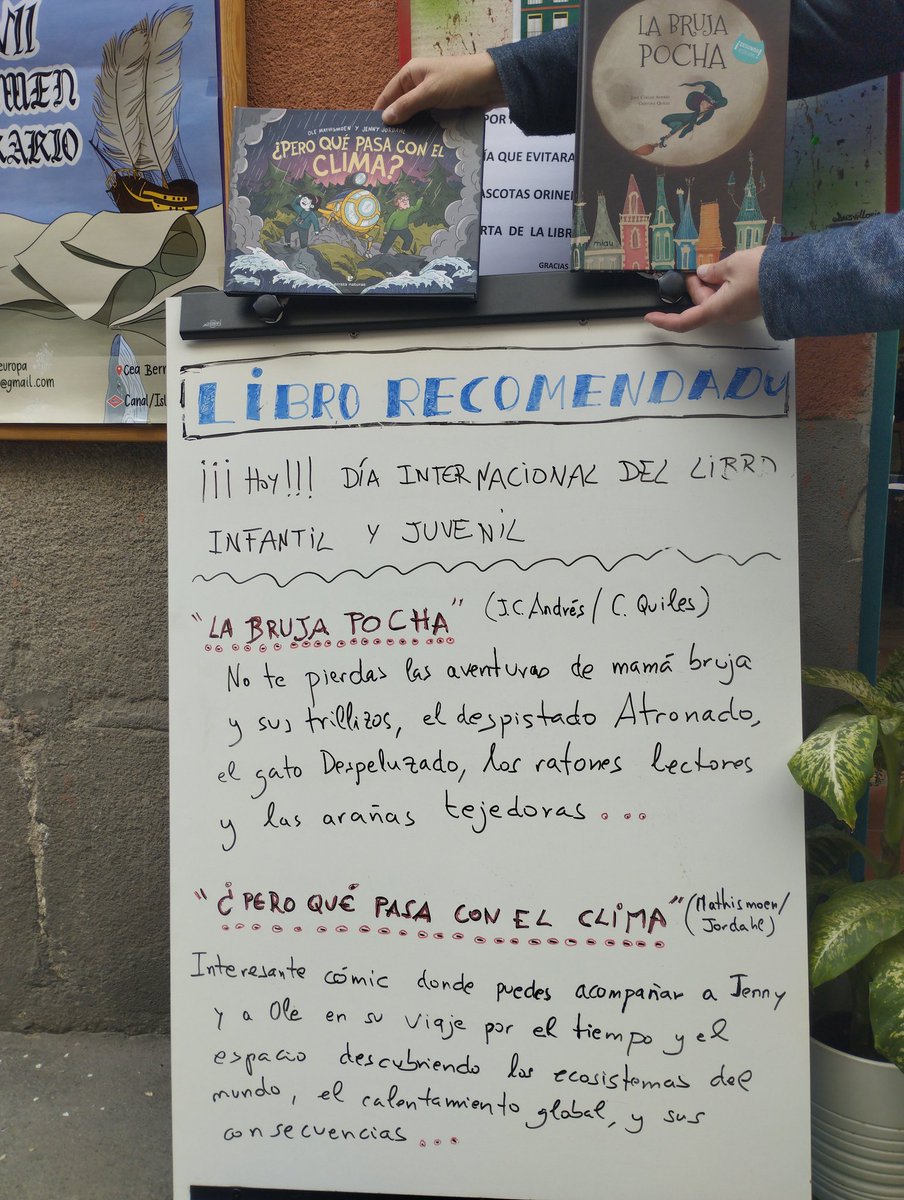 VII
MEN
RARIO
europa
@gmail.com
Cea Berm
Canal/Isl
OLE MATHISMOEN Y JENNY JORDAHL
¿PERO QUÉ PASA CON EL
CLIMA?
errata naturae
POR
ÍA QUE EVITARA
ASCOTAS ORINE
RTA DE LA LIBR
GRACIAS
LA BRUJA
POCHA
¡SEGUNDA
José Carlos Andrés
Cristina Quiles
milau
LIBRO RECOMENDADO
¡¡¡Hoy!!! DÍA INTERNACIONAL DEL LIBRO
INFANTIL Y JUVENIL
"LA BRUJA POCHA" (J.C. Andrés / C. Quiles)
No te pierdas las aventuras de mamá bruja
y sus trillizos, el despistado Atronado,
el gato Despeluzado, los ratones lectores
y las arañas tejedoras . . .
"¿PERO QUÉ PASA CON EL CLIMA" (Mathismoen/
Jordahl)
Interesante cómic donde puedes acompañar a Jenny
y a Ole en su viaje por el tiempo y el
espacio descubriendo los ecosistemas del
mundo, el calentamiento global, y sus
consecuencias . . .